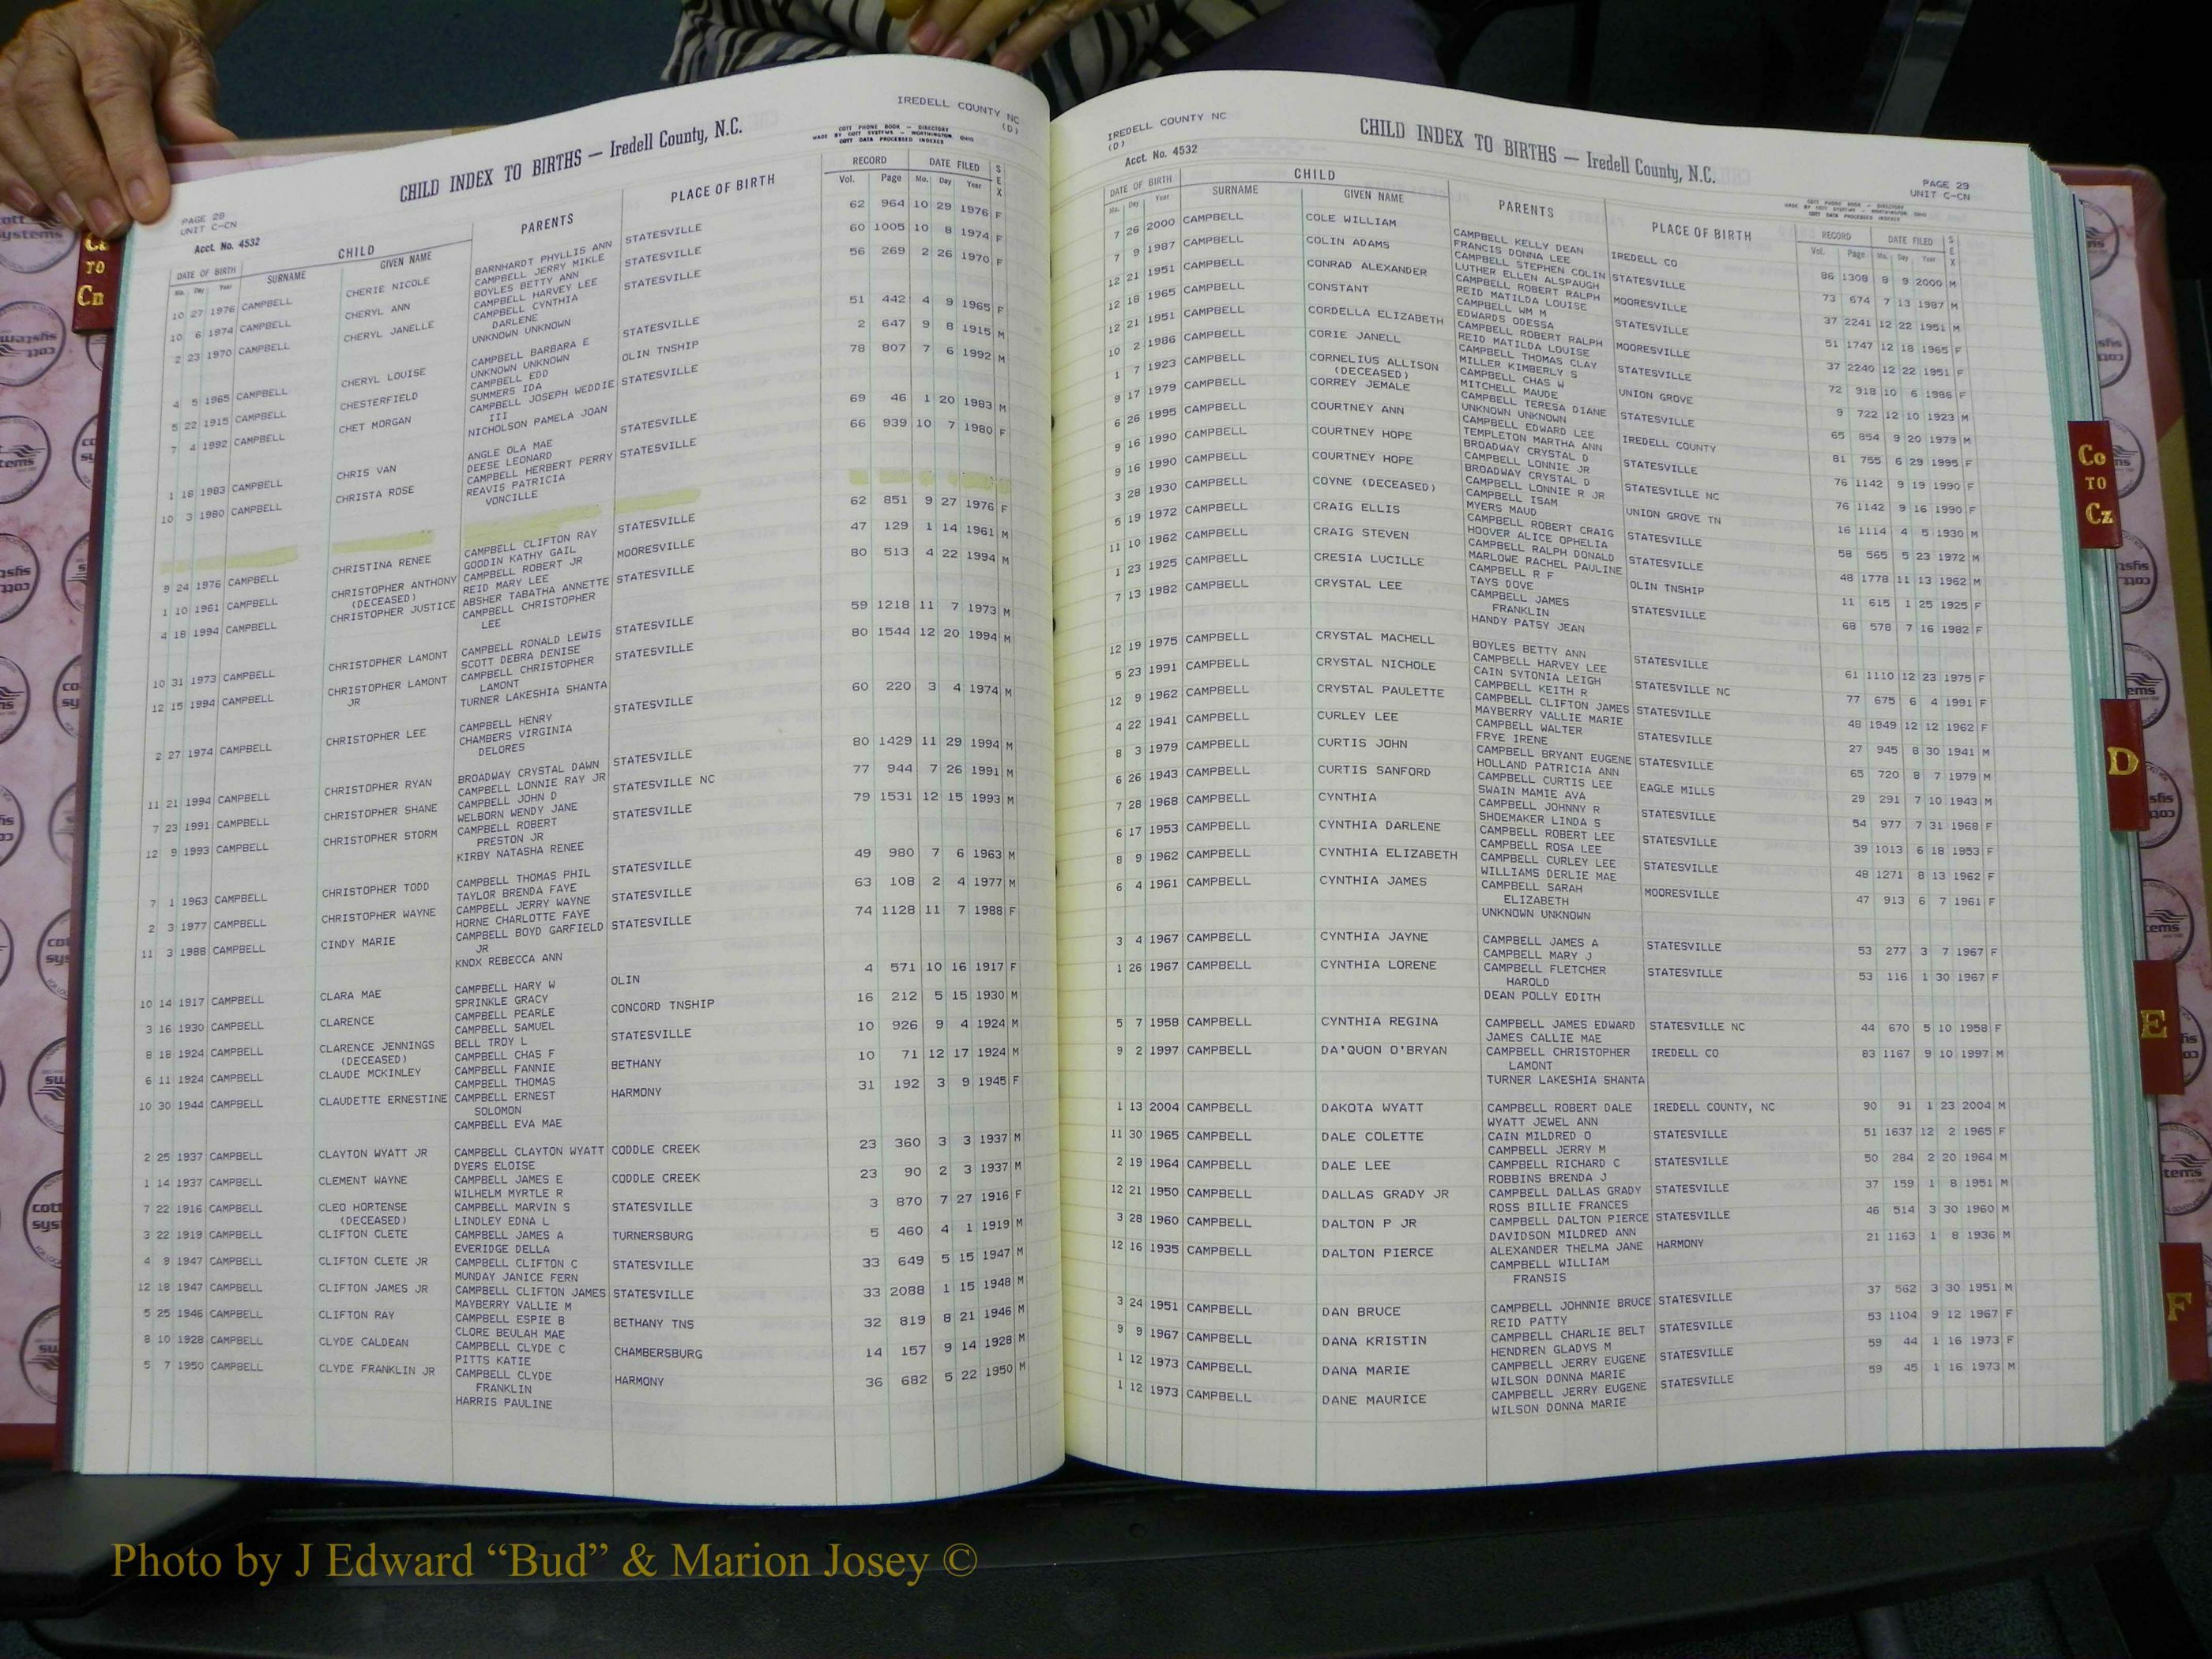 IREDELL COUNTY NC
(D)
CHILD INDEX TO BIRTHS — Iredell County, N.C.
COTT PHONE BOOK — DIRECTORY
MADE BY COTT SYSTEMS — WORTHINGTON, OHIO
COTT DATA PROCESSED INDEXES
PAGE 28
UNIT C-CN
Acct. No. 4532
DATE OF BIRTH CHILD PARENTS PLACE OF BIRTH RECORD DATE FILED SEX
Mo. Day Year SURNAME GIVEN NAME Vol. Page Mo. Day Year
10 27 1976 CAMPBELL CHERIE NICOLE BARNHARDT PHYLLIS ANN STATESVILLE 62 964 10 29 1976 F
CAMPBELL JERRY MIKLE
10 6 1974 CAMPBELL CHERYL ANN BOYLES BETTY ANN STATESVILLE 60 1005 10 8 1974 F
CAMPBELL HARVEY LEE
2 23 1970 CAMPBELL CHERYL JANELLE CAMPBELL CYNTHIA STATESVILLE 56 269 2 26 1970 F
DARLENE
UNKNOWN UNKNOWN
4 5 1965 CAMPBELL CHERYL LOUISE CAMPBELL BARBARA E STATESVILLE 51 442 4 9 1965 F
UNKNOWN UNKNOWN
5 22 1915 CAMPBELL CHESTERFIELD CAMPBELL EDD OLIN TNSHIP 2 647 9 8 1915 M
SUMMERS IDA
7 4 1992 CAMPBELL CHET MORGAN CAMPBELL JOSEPH WEDDIE STATESVILLE 78 807 7 6 1992 M
III
NICHOLSON PAMELA JOAN
1 18 1983 CAMPBELL CHRIS VAN ANGLE OLA MAE STATESVILLE 69 46 1 20 1983 M
DEESE LEONARD
10 3 1980 CAMPBELL CHRISTA ROSE CAMPBELL HERBERT PERRY STATESVILLE 66 939 10 7 1980 F
REAVIS PATRICIA
VONCILLE
9 24 1976 CAMPBELL CHRISTINA RENEE CAMPBELL CLIFTON RAY STATESVILLE 62 851 9 27 1976 F
GOODIN KATHY GAIL
1 10 1961 CAMPBELL CHRISTOPHER ANTHONY CAMPBELL ROBERT JR MOORESVILLE 47 129 1 14 1961 M
(DECEASED) REID MARY LEE
4 18 1994 CAMPBELL CHRISTOPHER JUSTICE ABSHER TABATHA ANNETTE STATESVILLE 80 513 4 22 1994 M
CAMPBELL CHRISTOPHER
LEE
10 31 1973 CAMPBELL CHRISTOPHER LAMONT CAMPBELL RONALD LEWIS STATESVILLE 59 1218 11 7 1973 M
SCOTT DEBRA DENISE
12 15 1994 CAMPBELL CHRISTOPHER LAMONT CAMPBELL CHRISTOPHER STATESVILLE 80 1544 12 20 1994 M
JR LAMONT
TURNER LAKESHIA SHANTA
2 27 1974 CAMPBELL CHRISTOPHER LEE CAMPBELL HENRY STATESVILLE 60 220 3 4 1974 M
CHAMBERS VIRGINIA
DELORES
11 21 1994 CAMPBELL CHRISTOPHER RYAN BROADWAY CRYSTAL DAWN STATESVILLE 80 1429 11 29 1994 M
CAMPBELL LONNIE RAY JR
7 23 1991 CAMPBELL CHRISTOPHER SHANE CAMPBELL JOHN D STATESVILLE NC 77 944 7 26 1991 M
WELBORN WENDY JANE
12 9 1993 CAMPBELL CHRISTOPHER STORM CAMPBELL ROBERT STATESVILLE 79 1531 12 15 1993 M
PRESTON JR
KIRBY NATASHA RENEE
7 1 1963 CAMPBELL CHRISTOPHER TODD CAMPBELL THOMAS PHIL STATESVILLE 49 980 7 6 1963 M
TAYLOR BRENDA FAYE
2 3 1977 CAMPBELL CHRISTOPHER WAYNE CAMPBELL JERRY WAYNE STATESVILLE 63 108 2 4 1977 M
HORNE CHARLOTTE FAYE
11 3 1988 CAMPBELL CINDY MARIE CAMPBELL BOYD GARFIELD STATESVILLE 74 1128 11 7 1988 F
JR
KNOX REBECCA ANN
10 14 1917 CAMPBELL CLARA MAE CAMPBELL HARY W OLIN 4 571 10 16 1917 F
SPRINKLE GRACY
3 16 1930 CAMPBELL CLARENCE CAMPBELL PEARLE CONCORD TNSHIP 16 212 5 15 1930 M
CAMPBELL SAMUEL
8 18 1924 CAMPBELL CLARENCE JENNINGS BELL TROY L STATESVILLE 10 926 9 4 1924 M
(DECEASED) CAMPBELL CHAS F
6 11 1924 CAMPBELL CLAUDE MCKINLEY CAMPBELL FANNIE BETHANY 10 71 12 17 1924 M
CAMPBELL THOMAS
10 30 1944 CAMPBELL CLAUDETTE ERNESTINE CAMPBELL ERNEST HARMONY 31 192 3 9 1945 F
SOLOMON
CAMPBELL EVA MAE
2 25 1937 CAMPBELL CLAYTON WYATT JR CAMPBELL CLAYTON WYATT CODDLE CREEK 23 360 3 3 1937 M
DYERS ELOISE
1 14 1937 CAMPBELL CLEMENT WAYNE CAMPBELL JAMES E CODDLE CREEK 23 90 2 3 1937 M
WILHELM MYRTLE R
7 22 1916 CAMPBELL CLEO HORTENSE CAMPBELL MARVIN S STATESVILLE 3 870 7 27 1916 F
(DECEASED) LINDLEY EDNA L
3 22 1919 CAMPBELL CLIFTON CLETE CAMPBELL JAMES A TURNERSBURG 5 460 4 1 1919 M
EVERIDGE DELLA
4 9 1947 CAMPBELL CLIFTON CLETE JR CAMPBELL CLIFTON C STATESVILLE 33 649 5 15 1947 M
MUNDAY JANICE FERN
12 18 1947 CAMPBELL CLIFTON JAMES JR CAMPBELL CLIFTON JAMES STATESVILLE 33 2088 1 15 1948 M
MAYBERRY VALLIE M
5 25 1946 CAMPBELL CLIFTON RAY CAMPBELL ESPIE B BETHANY TNS 32 819 8 21 1946 M
CLORE BEULAH MAE
8 10 1928 CAMPBELL CLYDE CALDEAN CAMPBELL CLYDE C CHAMBERSBURG 14 157 9 14 1928 M
PITTS KATIE
5 7 1950 CAMPBELL CLYDE FRANKLIN JR CAMPBELL CLYDE HARMONY 36 682 5 22 1950 M
FRANKLIN
HARRIS PAULINE
IREDELL COUNTY NC
(D)
Acct. No. 4532
CHILD INDEX TO BIRTHS — Iredell County, N.C.
PAGE 29
UNIT C-CN
COTT PHONE BOOK — DIRECTORY
MADE BY COTT SYSTEMS — WORTHINGTON, OHIO
COTT DATA PROCESSED INDEXES
DATE OF BIRTH CHILD PARENTS PLACE OF BIRTH RECORD DATE FILED SEX
Mo. Day Year SURNAME GIVEN NAME Vol. Page Mo. Day Year
7 26 2000 CAMPBELL COLE WILLIAM CAMPBELL KELLY DEAN IREDELL CO 86 1308 8 9 2000 M
FRANCIS DONNA LEE
7 9 1987 CAMPBELL COLIN ADAMS CAMPBELL STEPHEN COLIN STATESVILLE 73 674 7 13 1987 M
LUTHER ELLEN ALSPAUGH
12 21 1951 CAMPBELL CONRAD ALEXANDER CAMPBELL ROBERT RALPH MOORESVILLE 37 2241 12 22 1951 M
REID MATILDA LOUISE
12 18 1965 CAMPBELL CONSTANT CAMPBELL WM M STATESVILLE 51 1747 12 18 1965 F
EDWARDS ODESSA
12 21 1951 CAMPBELL CORDELLA ELIZABETH CAMPBELL ROBERT RALPH MOORESVILLE 37 2240 12 22 1951 F
REID MATILDA LOUISE
10 2 1986 CAMPBELL CORIE JANELL CAMPBELL THOMAS CLAY STATESVILLE 72 918 10 6 1986 F
MILLER KIMBERLY S
1 7 1923 CAMPBELL CORNELIUS ALLISON CAMPBELL CHAS W UNION GROVE 9 722 12 10 1923 M
(DECEASED) MITCHELL MAUDE
9 17 1979 CAMPBELL CORREY JEMALE CAMPBELL TERESA DIANE STATESVILLE 65 854 9 20 1979 M
UNKNOWN UNKNOWN
6 26 1995 CAMPBELL COURTNEY ANN CAMPBELL EDWARD LEE IREDELL COUNTY 81 755 6 29 1995 F
TEMPLETON MARTHA ANN
9 16 1990 CAMPBELL COURTNEY HOPE BROADWAY CRYSTAL D STATESVILLE 76 1142 9 19 1990 F
CAMPBELL LONNIE JR
9 16 1990 CAMPBELL COURTNEY HOPE BROADWAY CRYSTAL D STATESVILLE NC 76 1142 9 16 1990 F
CAMPBELL LONNIE R JR
3 28 1930 CAMPBELL COYNE (DECEASED) CAMPBELL ISAM UNION GROVE TN 16 1114 4 5 1930 M
MYERS MAUD
5 19 1972 CAMPBELL CRAIG ELLIS CAMPBELL ROBERT CRAIG STATESVILLE 58 565 5 23 1972 M
HOOVER ALICE OPHELIA
11 10 1962 CAMPBELL CRAIG STEVEN CAMPBELL RALPH DONALD STATESVILLE 48 1778 11 13 1962 M
MARLOWE RACHEL PAULINE
1 23 1925 CAMPBELL CRESIA LUCILLE CAMPBELL R F OLIN TNSHIP 11 615 1 25 1925 F
TAYS DOVE
7 13 1982 CAMPBELL CRYSTAL LEE CAMPBELL JAMES STATESVILLE 68 578 7 16 1982 F
FRANKLIN
HANDY PATSY JEAN
12 19 1975 CAMPBELL CRYSTAL MACHELL BOYLES BETTY ANN STATESVILLE 61 1110 12 23 1975 F
CAMPBELL HARVEY LEE
5 23 1991 CAMPBELL CRYSTAL NICHOLE CAIN SYTONIA LEIGH STATESVILLE NC 77 675 6 4 1991 F
CAMPBELL KEITH R
12 9 1962 CAMPBELL CRYSTAL PAULETTE CAMPBELL CLIFTON JAMES STATESVILLE 48 1949 12 12 1962 F
MAYBERRY VALLIE MARIE
4 22 1941 CAMPBELL CURLEY LEE CAMPBELL WALTER STATESVILLE 27 945 8 30 1941 M
FRYE IRENE
8 3 1979 CAMPBELL CURTIS JOHN CAMPBELL BRYANT EUGENE STATESVILLE 65 720 8 7 1979 M
HOLLAND PATRICIA ANN
6 26 1943 CAMPBELL CURTIS SANFORD CAMPBELL CURTIS LEE EAGLE MILLS 29 291 7 10 1943 M
SWAIN MAMIE AVA
7 28 1968 CAMPBELL CYNTHIA CAMPBELL JOHNNY R STATESVILLE 54 977 7 31 1968 F
SHOEMAKER LINDA S
6 17 1953 CAMPBELL CYNTHIA DARLENE CAMPBELL ROBERT LEE STATESVILLE 39 1013 6 18 1953 F
CAMPBELL ROSA LEE
8 9 1962 CAMPBELL CYNTHIA ELIZABETH CAMPBELL CURLEY LEE STATESVILLE 48 1271 8 13 1962 F
WILLIAMS DERLIE MAE
6 4 1961 CAMPBELL CYNTHIA JAMES CAMPBELL SARAH MOORESVILLE 47 913 6 7 1961 F
ELIZABETH
UNKNOWN UNKNOWN
3 4 1967 CAMPBELL CYNTHIA JAYNE CAMPBELL JAMES A STATESVILLE 53 277 3 7 1967 F
CAMPBELL MARY J
1 26 1967 CAMPBELL CYNTHIA LORENE CAMPBELL FLETCHER STATESVILLE 53 116 1 30 1967 F
HAROLD
DEAN POLLY EDITH
5 7 1958 CAMPBELL CYNTHIA REGINA CAMPBELL JAMES EDWARD STATESVILLE NC 44 670 5 10 1958 F
JAMES CALLIE MAE
9 2 1997 CAMPBELL DA'QUON O'BRYAN CAMPBELL CHRISTOPHER IREDELL CO 83 1167 9 10 1997 M
LAMONT
TURNER LAKESHIA SHANTA
1 13 2004 CAMPBELL DAKOTA WYATT CAMPBELL ROBERT DALE IREDELL COUNTY, NC 90 91 1 23 2004 M
WYATT JEWEL ANN
11 30 1965 CAMPBELL DALE COLETTE CAIN MILDRED O STATESVILLE 51 1637 12 2 1965 F
CAMPBELL JERRY M
2 19 1964 CAMPBELL DALE LEE CAMPBELL RICHARD C STATESVILLE 50 284 2 20 1964 M
ROBBINS BRENDA J
12 21 1950 CAMPBELL DALLAS GRADY JR CAMPBELL DALLAS GRADY STATESVILLE 37 159 1 8 1951 M
ROSS BILLIE FRANCES
3 28 1960 CAMPBELL DALTON P JR CAMPBELL DALTON PIERCE STATESVILLE 46 514 3 30 1960 M
DAVIDSON MILDRED ANN
12 16 1935 CAMPBELL DALTON PIERCE ALEXANDER THELMA JANE HARMONY 21 1163 1 8 1936 M
CAMPBELL WILLIAM
FRANSIS
3 24 1951 CAMPBELL DAN BRUCE CAMPBELL JOHNNIE BRUCE STATESVILLE 37 562 3 30 1951 M
REID PATTY
9 9 1967 CAMPBELL DANA KRISTIN CAMPBELL CHARLIE BELT STATESVILLE 53 1104 9 12 1967 F
HENDREN GLADYS M
1 12 1973 CAMPBELL DANA MARIE CAMPBELL JERRY EUGENE STATESVILLE 59 44 1 16 1973 F
WILSON DONNA MARIE
1 12 1973 CAMPBELL DANE MAURICE CAMPBELL JERRY EUGENE STATESVILLE 59 45 1 16 1973 M
WILSON DONNA MARIE
Ca
TO
Cn
Co
TO
Cz
D
E
F
Photo by J Edward “Bud” & Marion Josey ©